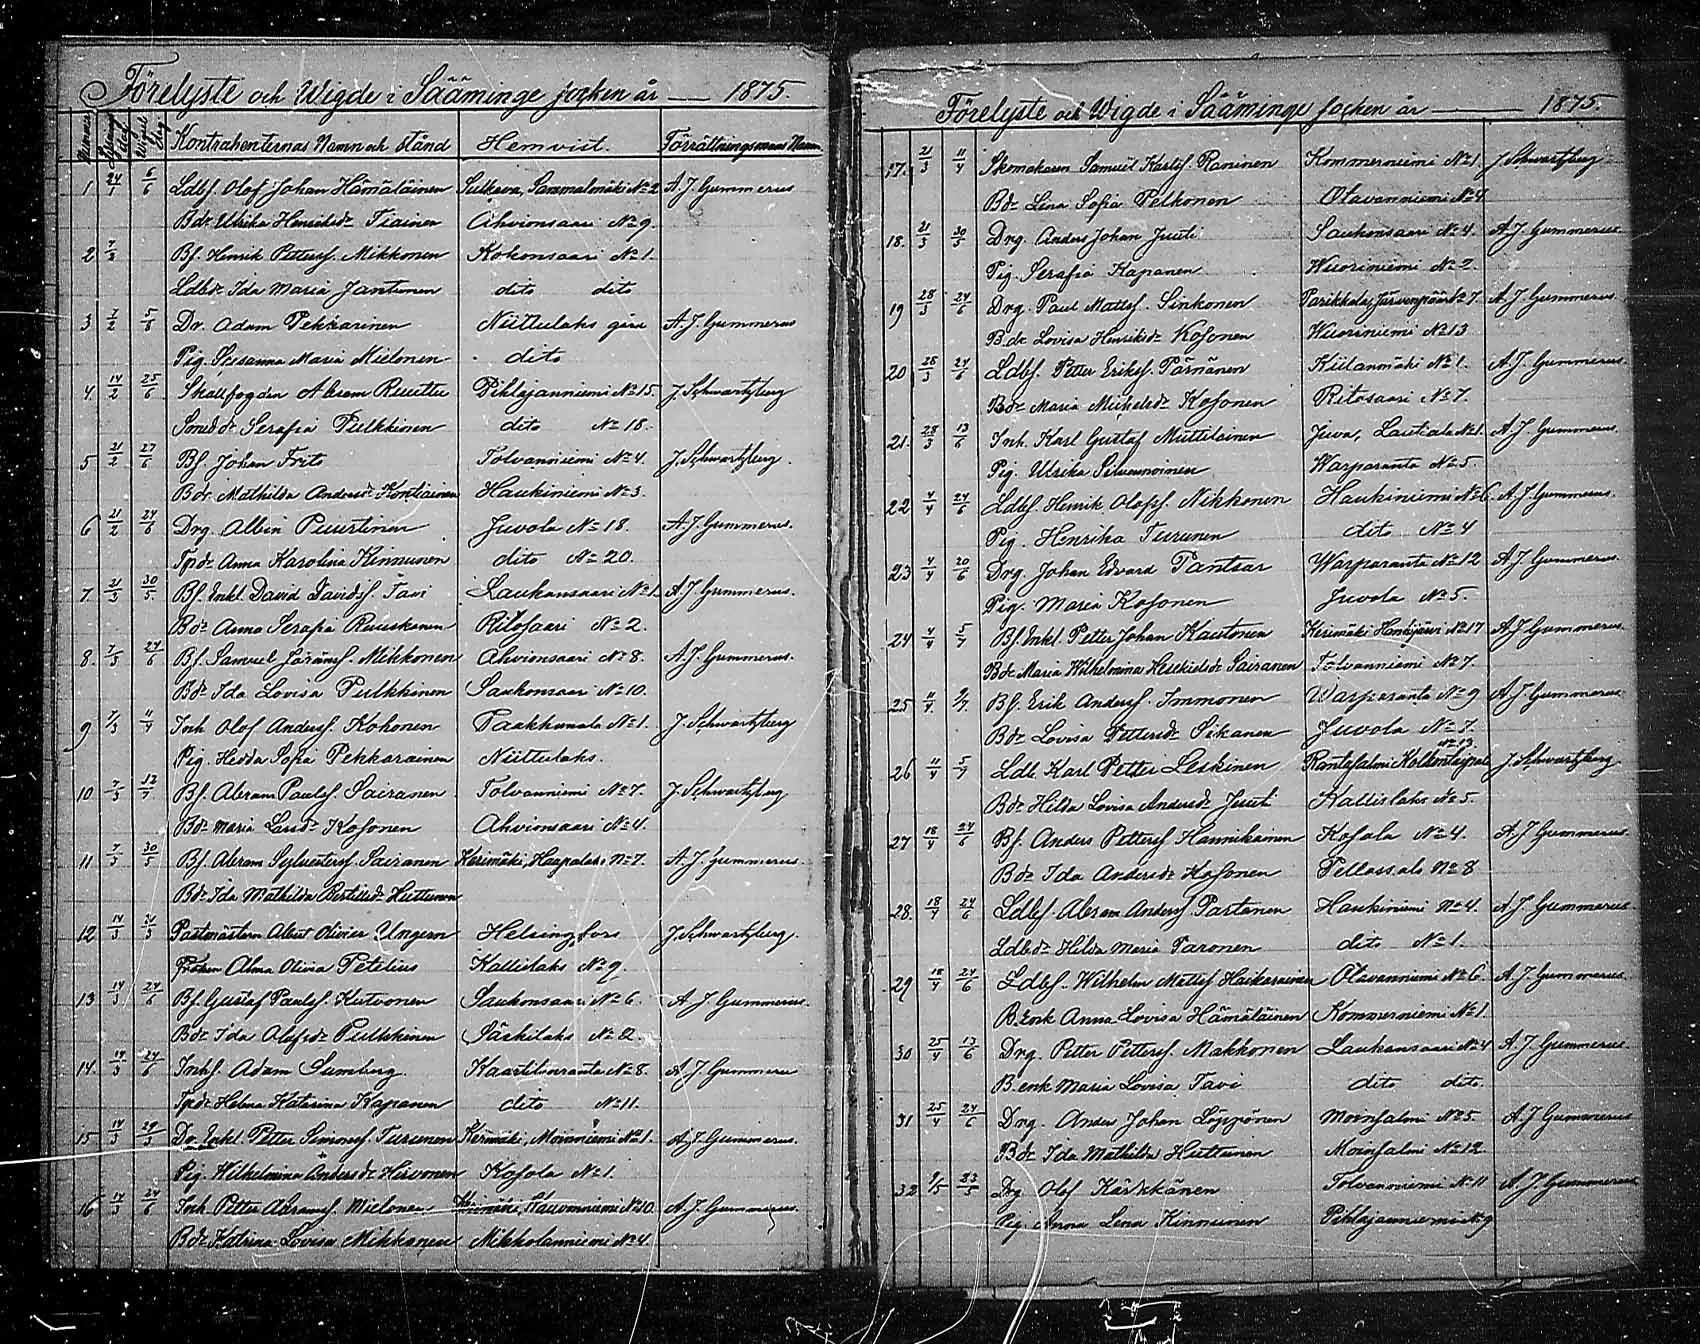 Förelyste och Wigde i Sääminge socken år — 1875.
Nummer Lysnings dag Wigsel dag Kontrahenternas Namn och stånd Hemvist. Förrättningsmans Namn
1 24/1 6/6 Ldbs. Olof Johan Hämäläinen Sulkava, Sammalmäki No 2 A. J. Gummerus
Bdr Ulrika Henriksdr Tiainen Ahvionsaari No 9.
2 7/2 Bs. Henrik Petters. Mikkonen Kokonsaari No 1.
Ldbdr Ida Maria Jantunen dito dito
3 7/2 5/6 Dr. Adam Pekkarinen Niittulaks gård A. J. Gummerus
Pig. Susanna Maria Mielonen dito
4 14/2 25/6 Skallfogden Abram Ruuttu Pihlajanniemi No 15. J. Schwartzberg
Smeddr Serafia Pulkkinen dito No 18.
5 21/2 27/6 Bs. Johan Frits Tolvanniemi No 4. J. Schwartzberg.
Bdr Mathilda Andersdr Kontiainen Haukiniemi No 3.
6 21/2 24/6 Drg. Albin Puustinen Juvola No 18. A. J. Gummerus.
Tpdr Anna Karolina Kinnunen dito No 20.
7 21/3 30/5. Bs. Enkl. David Davids. Tavi Laukansaari No 1. A. J. Gummerus.
Bdr Anna Serafia Ruuskanen Ritosaari No 2.
8. 7/3 24/6 Bs. Samuel Görans. Mikkonen Ahvionsaari No 8. A. J. Gummerus.
Bdr Ida Lovisa Pulkkinen Saukonsaari No 10.
9 7/3 11/4 Inh Olof Anders. Kohonen Paakkunala No 1. J. Schwartzberg
Pig. Hedda Sofia Pekkarainen Niittulaks.
10 7/3 12/7 Bs. Abram Pauls. Sairanen Tolvanniemi No 7. J. Schwartzberg
Bdr Maria Larsdr Kosonen Ahvionsaari No 4.
11 7/3 30/5 Bs. Abram Sylvesters. Sairanen Kerimäki, Haapalaks No 7. A. J. Gummerus.
Bdr Ida Mathilda Bertilsdr Huttunen
12 14/3 31/3 Postmästern Albert Olivier Ungern Helsingfors J. Schwartzberg.
Fröken Alma Olivia Petelius Kallislaks No 9.
13 14/3 24/6 Bs. Gustaf Pauls. Kutvonen Saukonsaari No 6. A. J. Gummerus.
Bdr Ida Olofsdr Pulkkinen Särkilaks No 2.
14. 14/3 24/6 Inhs. Adam Lumberg. Kaartilanranta No 8. A. J. Gummerus
Tpdr Helena Katarina Kapanen dito No 11.
15 14/3 29/3 Dr. Enkl. Petter Simons. Turunen Kerimäki, Moinniemi No 1. A. J. Gummerus.
Pig. Wilhelmina Andersdr Hirvonen Kosola No 1.
16 14/3 24/6 Inh. Petter Abrams. Mielonen Kerimäki, Kauvonniemi No 10. A. J. Gummerus.
Bdr Katrina Lovisa Mikkonen Mikkolanniemi No 4.
Förelyste och Wigde i Sääminge socken år — 1875.
17. 21/3 11/4 Skomakaren Samuel Karls. Raninen Kommerniemi No 1 J. Schwartzberg
Bdr Lena Sofia Pelkonen Olavanniemi No 4
18. 21/3 30/5 Drg. Anders Johan Juuti Saukonsaari No 4. A. J. Gummerus
Pig. Serafia Kapanen Wuoriniemi No 2.
19 28/3 24/6 Drg. Paul Matts. Sinkonen Parikkala, Järvenpää No 7. A. J. Gummerus
Bdr Lovisa Henriksdr Kosonen Wuoriniemi No 13
20 28/3 24/6 Ldbs. Petter Eriks. Pärnänen Kiilanmäki No 1. A. J. Gummerus.
Bdr Maria Michelsdr Kosonen Ritosaari No 7.
21. 28/3 13/6 Inh. Karl Gustaf Muttilainen Juva, Lautiala No 1. A. J. Gummerus.
Pig. Ulrika Silvennoinen Warparanta No 5.
22 4/4 24/6 Ldbs. Henrik Olofs. Nikkonen Haukiniemi No 6 A. J. Gummerus.
Pig. Henrika Turunen dito No 4
23 4/4 20/6 Drg. Johan Edvard Pantsar Warparanta No 12 A. J. Gummerus.
Pig. Maria Kosonen Juvola No 5.
24 4/4 5/7 Bs. Enkl. Petter Johan Kautonen Kerimäki Haukijärvi No 17 A. J. Gummerus.
Bdr Maria Wilhelmina Hesekielsdr Sairanen Tolvanniemi No 7.
25 11/4 9/7 Bs. Erik Anders. Immonen Warparanta No 9 A. J. Gummerus.
Bdr Lovisa Pettersdr Sikanen Juvola No 7.
26 11/4 5/7 Ldb. Karl Petter Leskinen Rantasalmi J. Schwartzberg
Bdr Hilda Lovisa Andersdr Juuti Kallislaks No 5.
27 18/4 24/6 Bs. Anders Petters. Hannikainen Kosola No 4. A. J. Gummerus.
Bdr Ida Andersdr Kosonen Pellossalo No 8
28. 18/4 24/6 Ldbs. Abram Anders. Partanen Haukiniemi No 4. A. J. Gummerus
Ldbdr Hilda Maria Paronen dito No 1.
29 18/4 24/6 Ldbs. Wilhelm Matts. Haikarainen Olavanniemi No 6. A. J. Gummerus
B. Enk Anna Lovisa Hämäläinen Kommerniemi No 1.
30 25/4 13/6 Drg. Petter Petters. Makkonen Laukansaari No 4 A. J. Gummerus.
B. enk Maria Lovisa Tavi dito dito.
31 25/4 24/6 Drg. Anders Johan Löppönen Moinsalmi No 5. A. J. Gummerus
Bdr Ida Mathilda Huttunen Moinsalmi No 12.
32 9/5 23/5 Drg Olof Kärkkänen Tolvanniemi No 11 A. J. Gummerus
Pig. Anna Lena Kinnunen Pihlajanniemi No 9